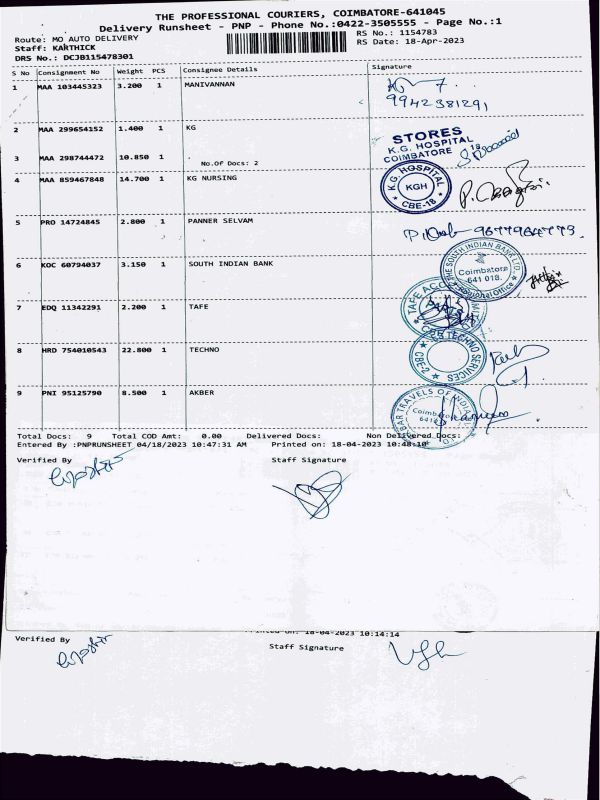 THE PROFESSIONAL COURIERS, COIMBATORE-641045
Delivery Runsheet - PNP - Phone No.:0422-3505555 - Page No.:1
Route: MO AUTO DELIVERY
RS No.: 1154783
Staff: KARTHICK
RS Date: 18-Apr-2023
DRS No.: DCJB115478301
S No Consignment No Weight PCS Consignee Details Signature
1 MAA 103445323 3.200 1 MANIVANNAN
9942381291
2 MAA 299654152 1.400 1 KG
STORES
K.G. HOSPITAL
COIMBATORE 18
3 MAA 298744472 10.850 1
No.Of Docs: 2
4 MAA 859467848 14.700 1 KG NURSING
K.G. HOSPITAL
KGH
CBE-18
5 PRO 14724845 2.800 1 PANNER SELVAM
6 KOC 60794037 3.150 1 SOUTH INDIAN BANK
THE SOUTH INDIAN BANK LTD.
Coimbatore
641 018.
7 EDQ 11342291 2.200 1 TAFE
TAFE ACC
8 HRD 754010543 22.800 1 TECHNO
TECHNO SERVICES
CBE-2
9 PNI 95125790 8.500 1 AKBER
TRAVELS OF INDIA
Total Docs: 9 Total COD Amt: 0.00 Delivered Docs: Non Delivered Docs:
Entered By :PNPRUNSHEET 04/18/2023 10:47:31 AM Printed on: 18-04-2023 10:48:10
Verified By Staff Signature
Printed on: 18-04-2023 10:14:14
Verified By Staff Signature